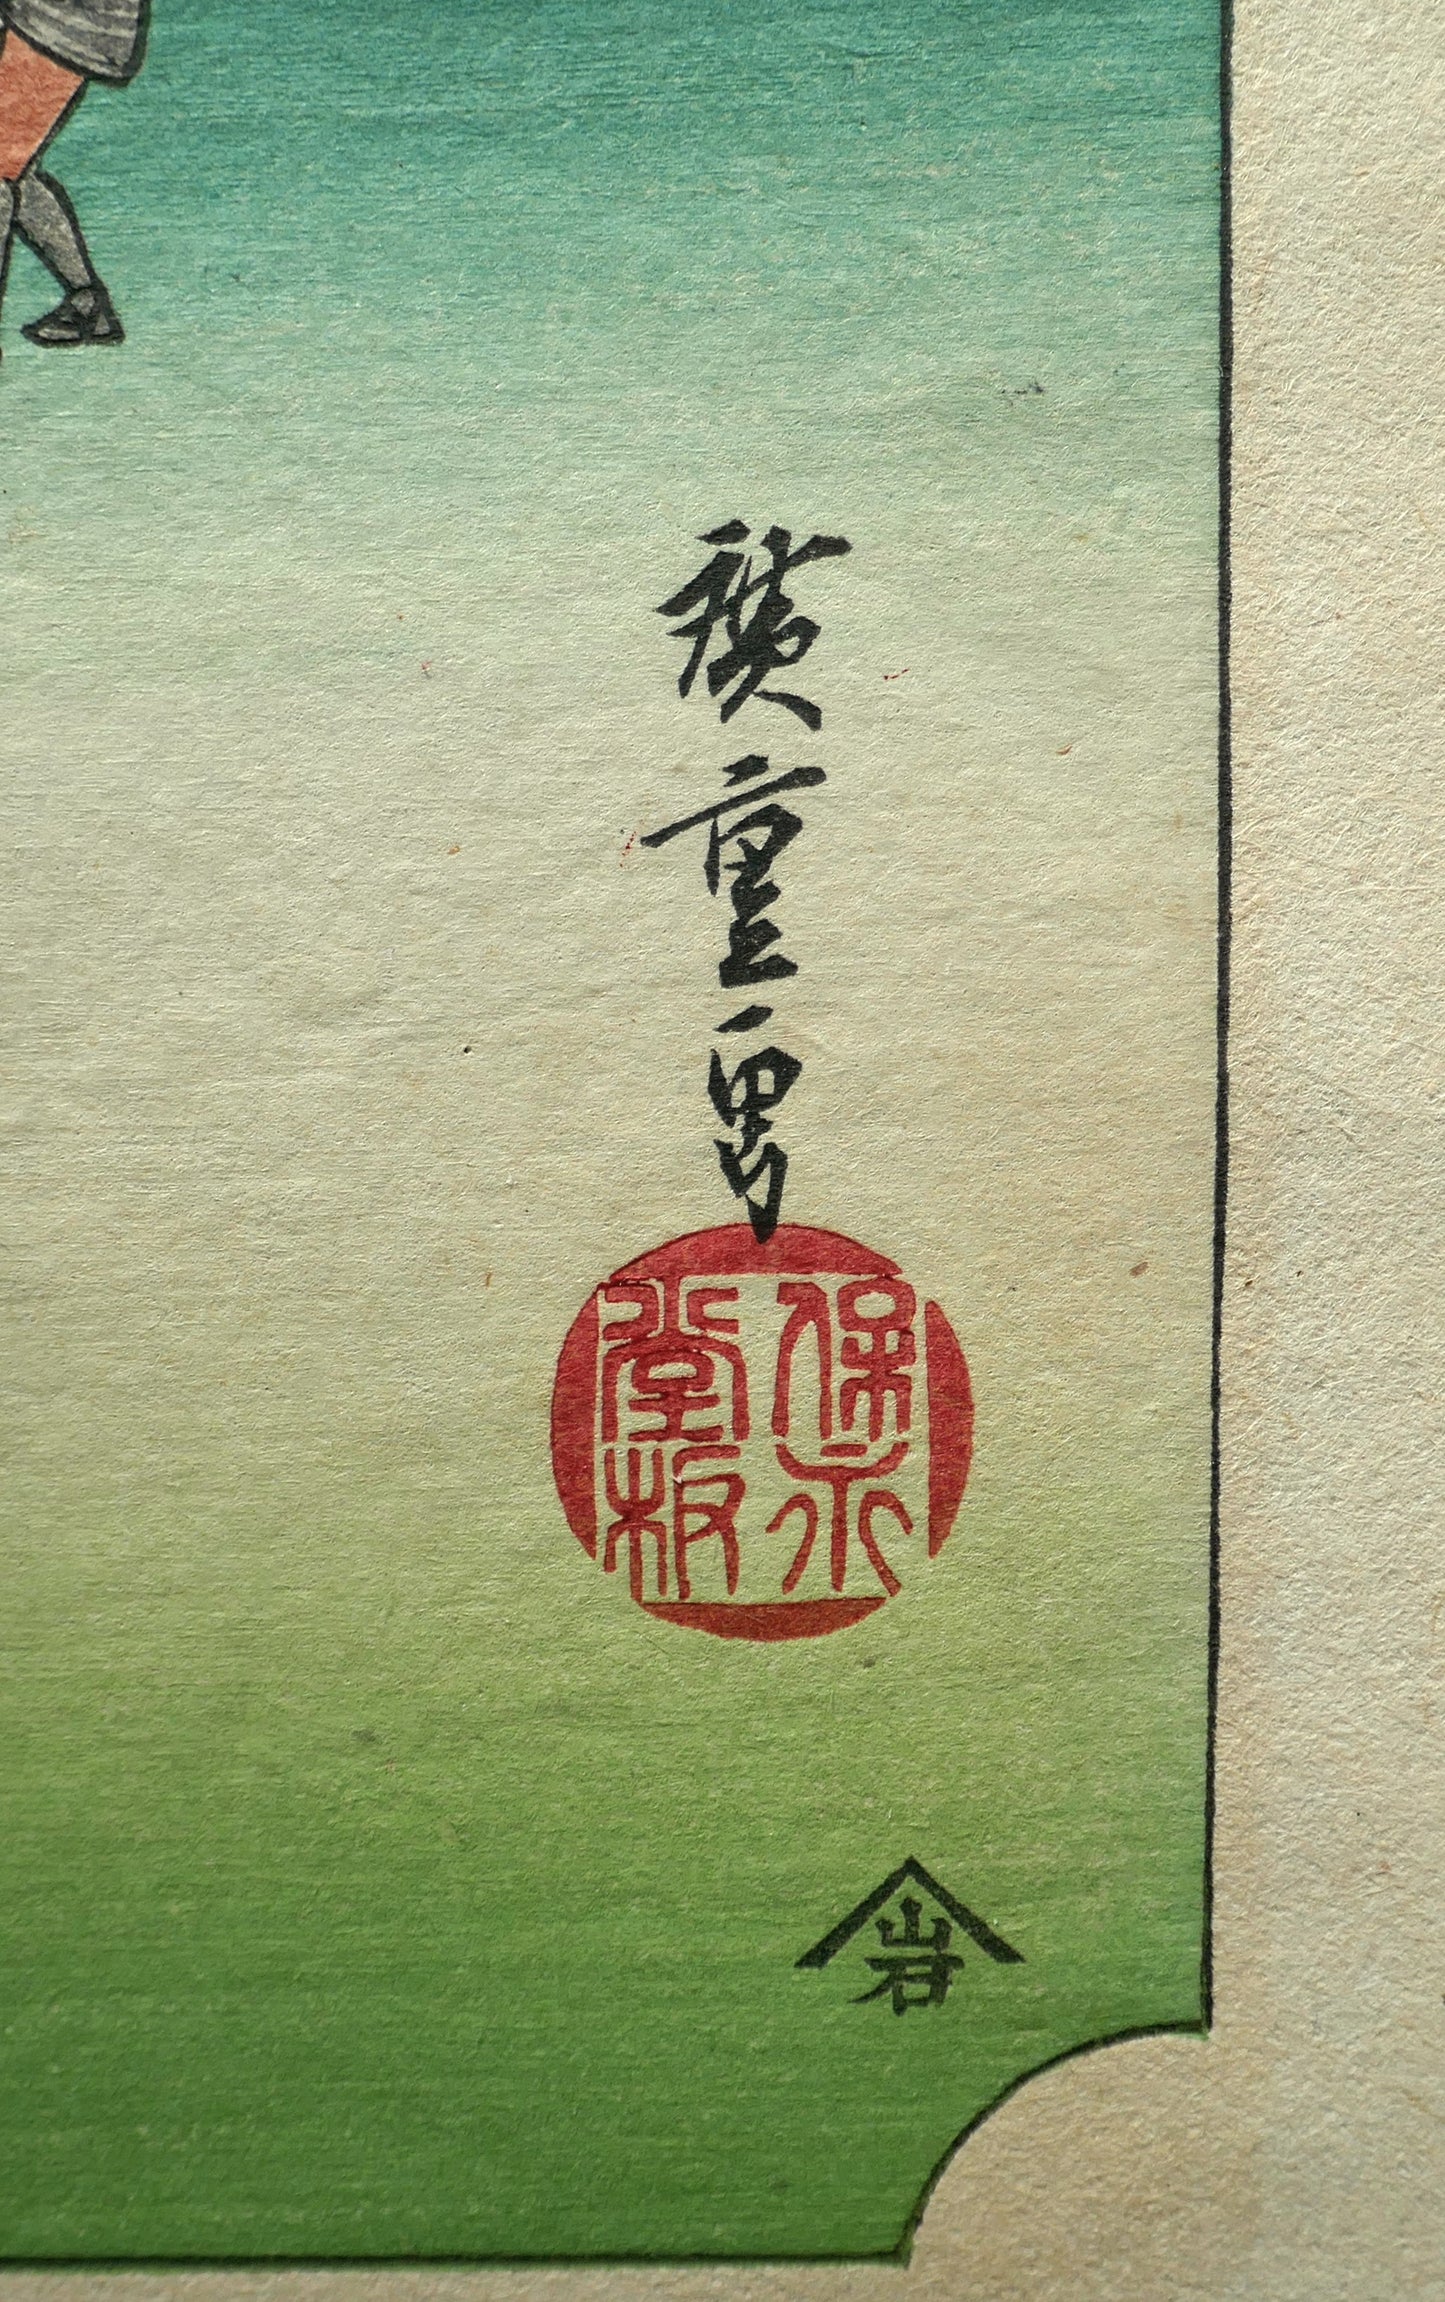 廣重画
保永
堂板
岩